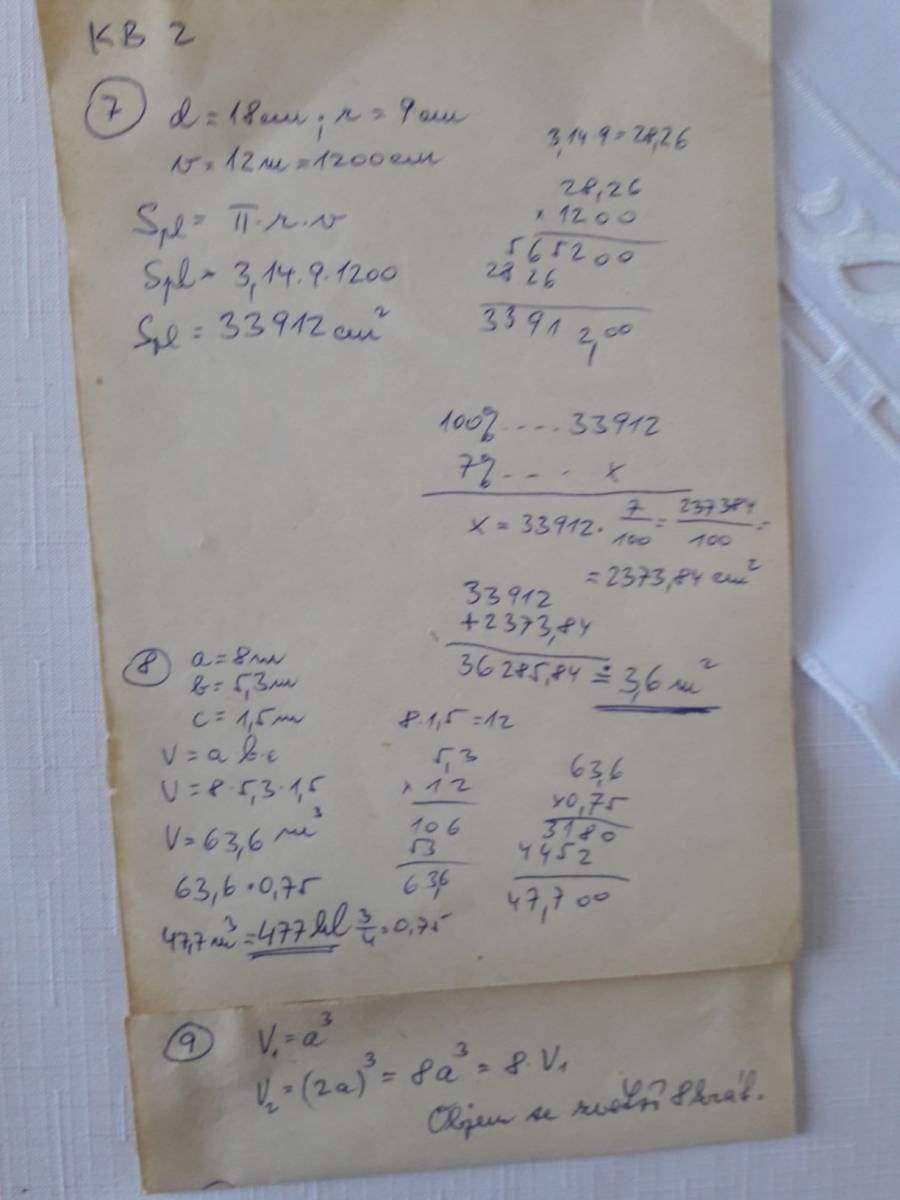 KB 2
7 d = 18cm ; r = 9cm
v = 12m = 1200cm
3,14·9 = 28,26
28,26
× 1200
565200
2826
33912,00
Spl = π·r·v
Spl = 3,14·9·1200
Spl = 33912 cm²
100% .... 33912
7% .... x
x = 33912 · 7/100 = 237384/100 =
= 2373,84 cm²
33912
+2373,84
36285,84 ≐ 3,6 m²
8 a = 8m
b = 5,3m
c = 1,5m
V = a b·c
V = 8·5,3·1,5
V = 63,6 m³
63,6·0,75
47,7m³ = 477hl 3/4 = 0,75
8·1,5 = 12
5,3
× 12
106
53
63,6
63,6
×0,75
3180
4452
47,700
9 V₁ = a³
V₂ = (2a)³ = 8a³ = 8·V₁
Objem se zvětší 8krát.